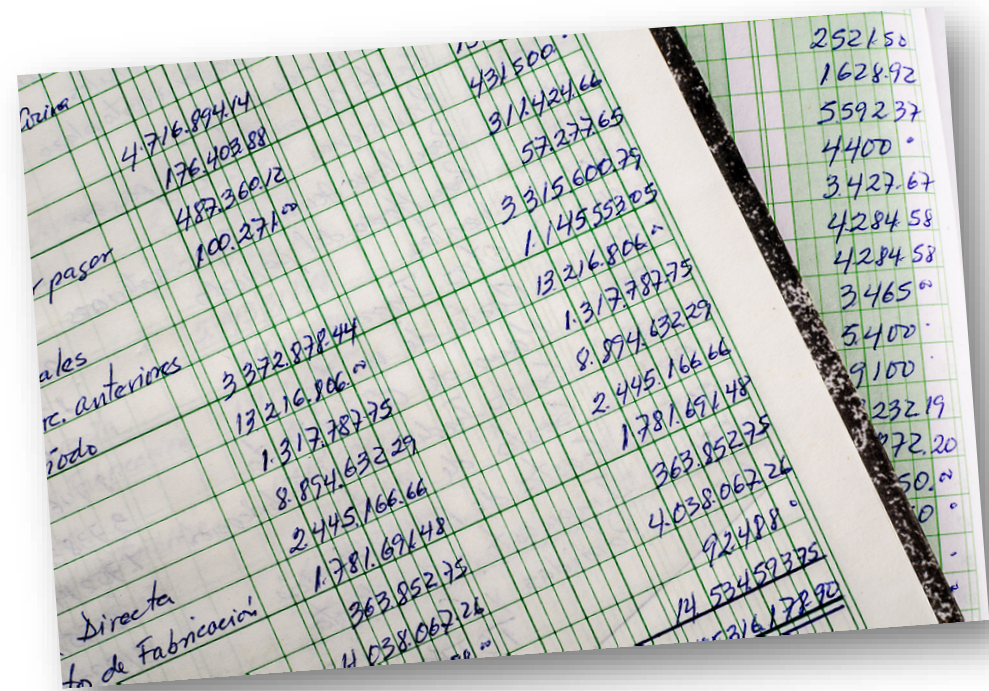 r pagar
ales
rc. anteriores
íodo
Directa
to de Fabricación
4.716.894.14
176.403.88
487.360.12
100.271.00
3.372.878.44
13.216.806.00
1.317.787.75
8.894.632.29
2.445.166.66
1.781.691.48
363.852.75
4.038.067.26
431.500.
311.424.66
57.277.65
3.315.600.79
1.145.553.05
13.216.806.
1.317.787.75
8.894.632.29
2.445.166.66
1.781.691.48
363.852.75
4.038.067.26
92.488
14.534.593.75
316.178.90
2521.50
1628.92
5592.37
4400
3.427.67
4284.58
4284.58
3465.00
5.400
9100
232.19
972.20
50.00
0